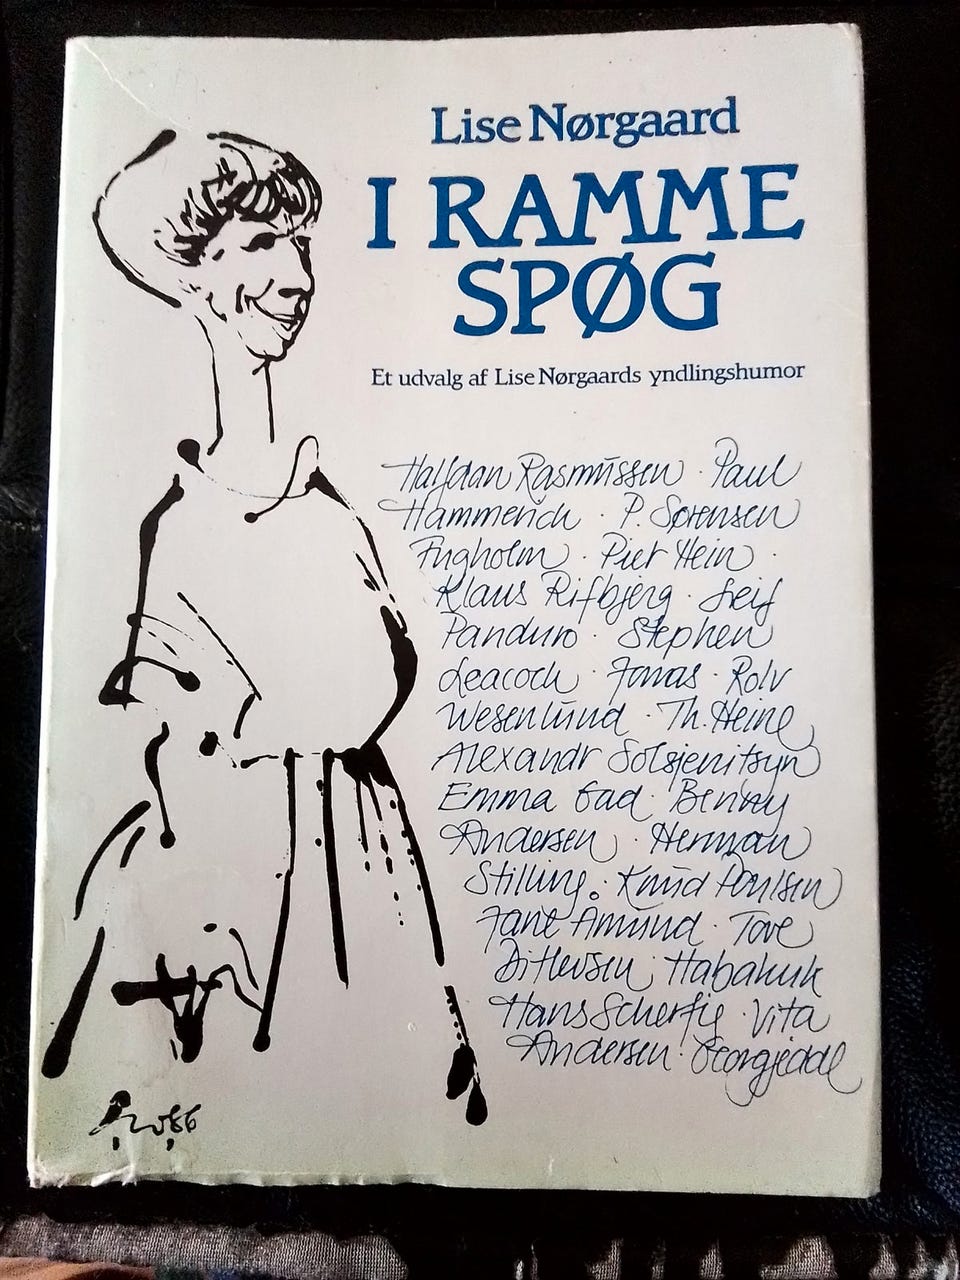 Lise Nørgaard
I RAMME
SPØG
Et udvalg af Lise Nørgaards yndlingshumor
Halfdan Rasmussen · Paul
Hammerich · P. Sørensen
Fugholm · Piet Hein ·
Klaus Rifbjerg · Leif
Panduro · Stephen
Leacock · Jonas · Rolv
Wesenlund · Th. Heine
Alexandr Solsjenitsyn
Emma Gad · Benny
Andersen · Herman
Stilling · Knud Poulsen
Jane Aamund · Tove
Ditlevsen · Habakuk
Hans Scherfig · Vita
Andersen · Georgjedde